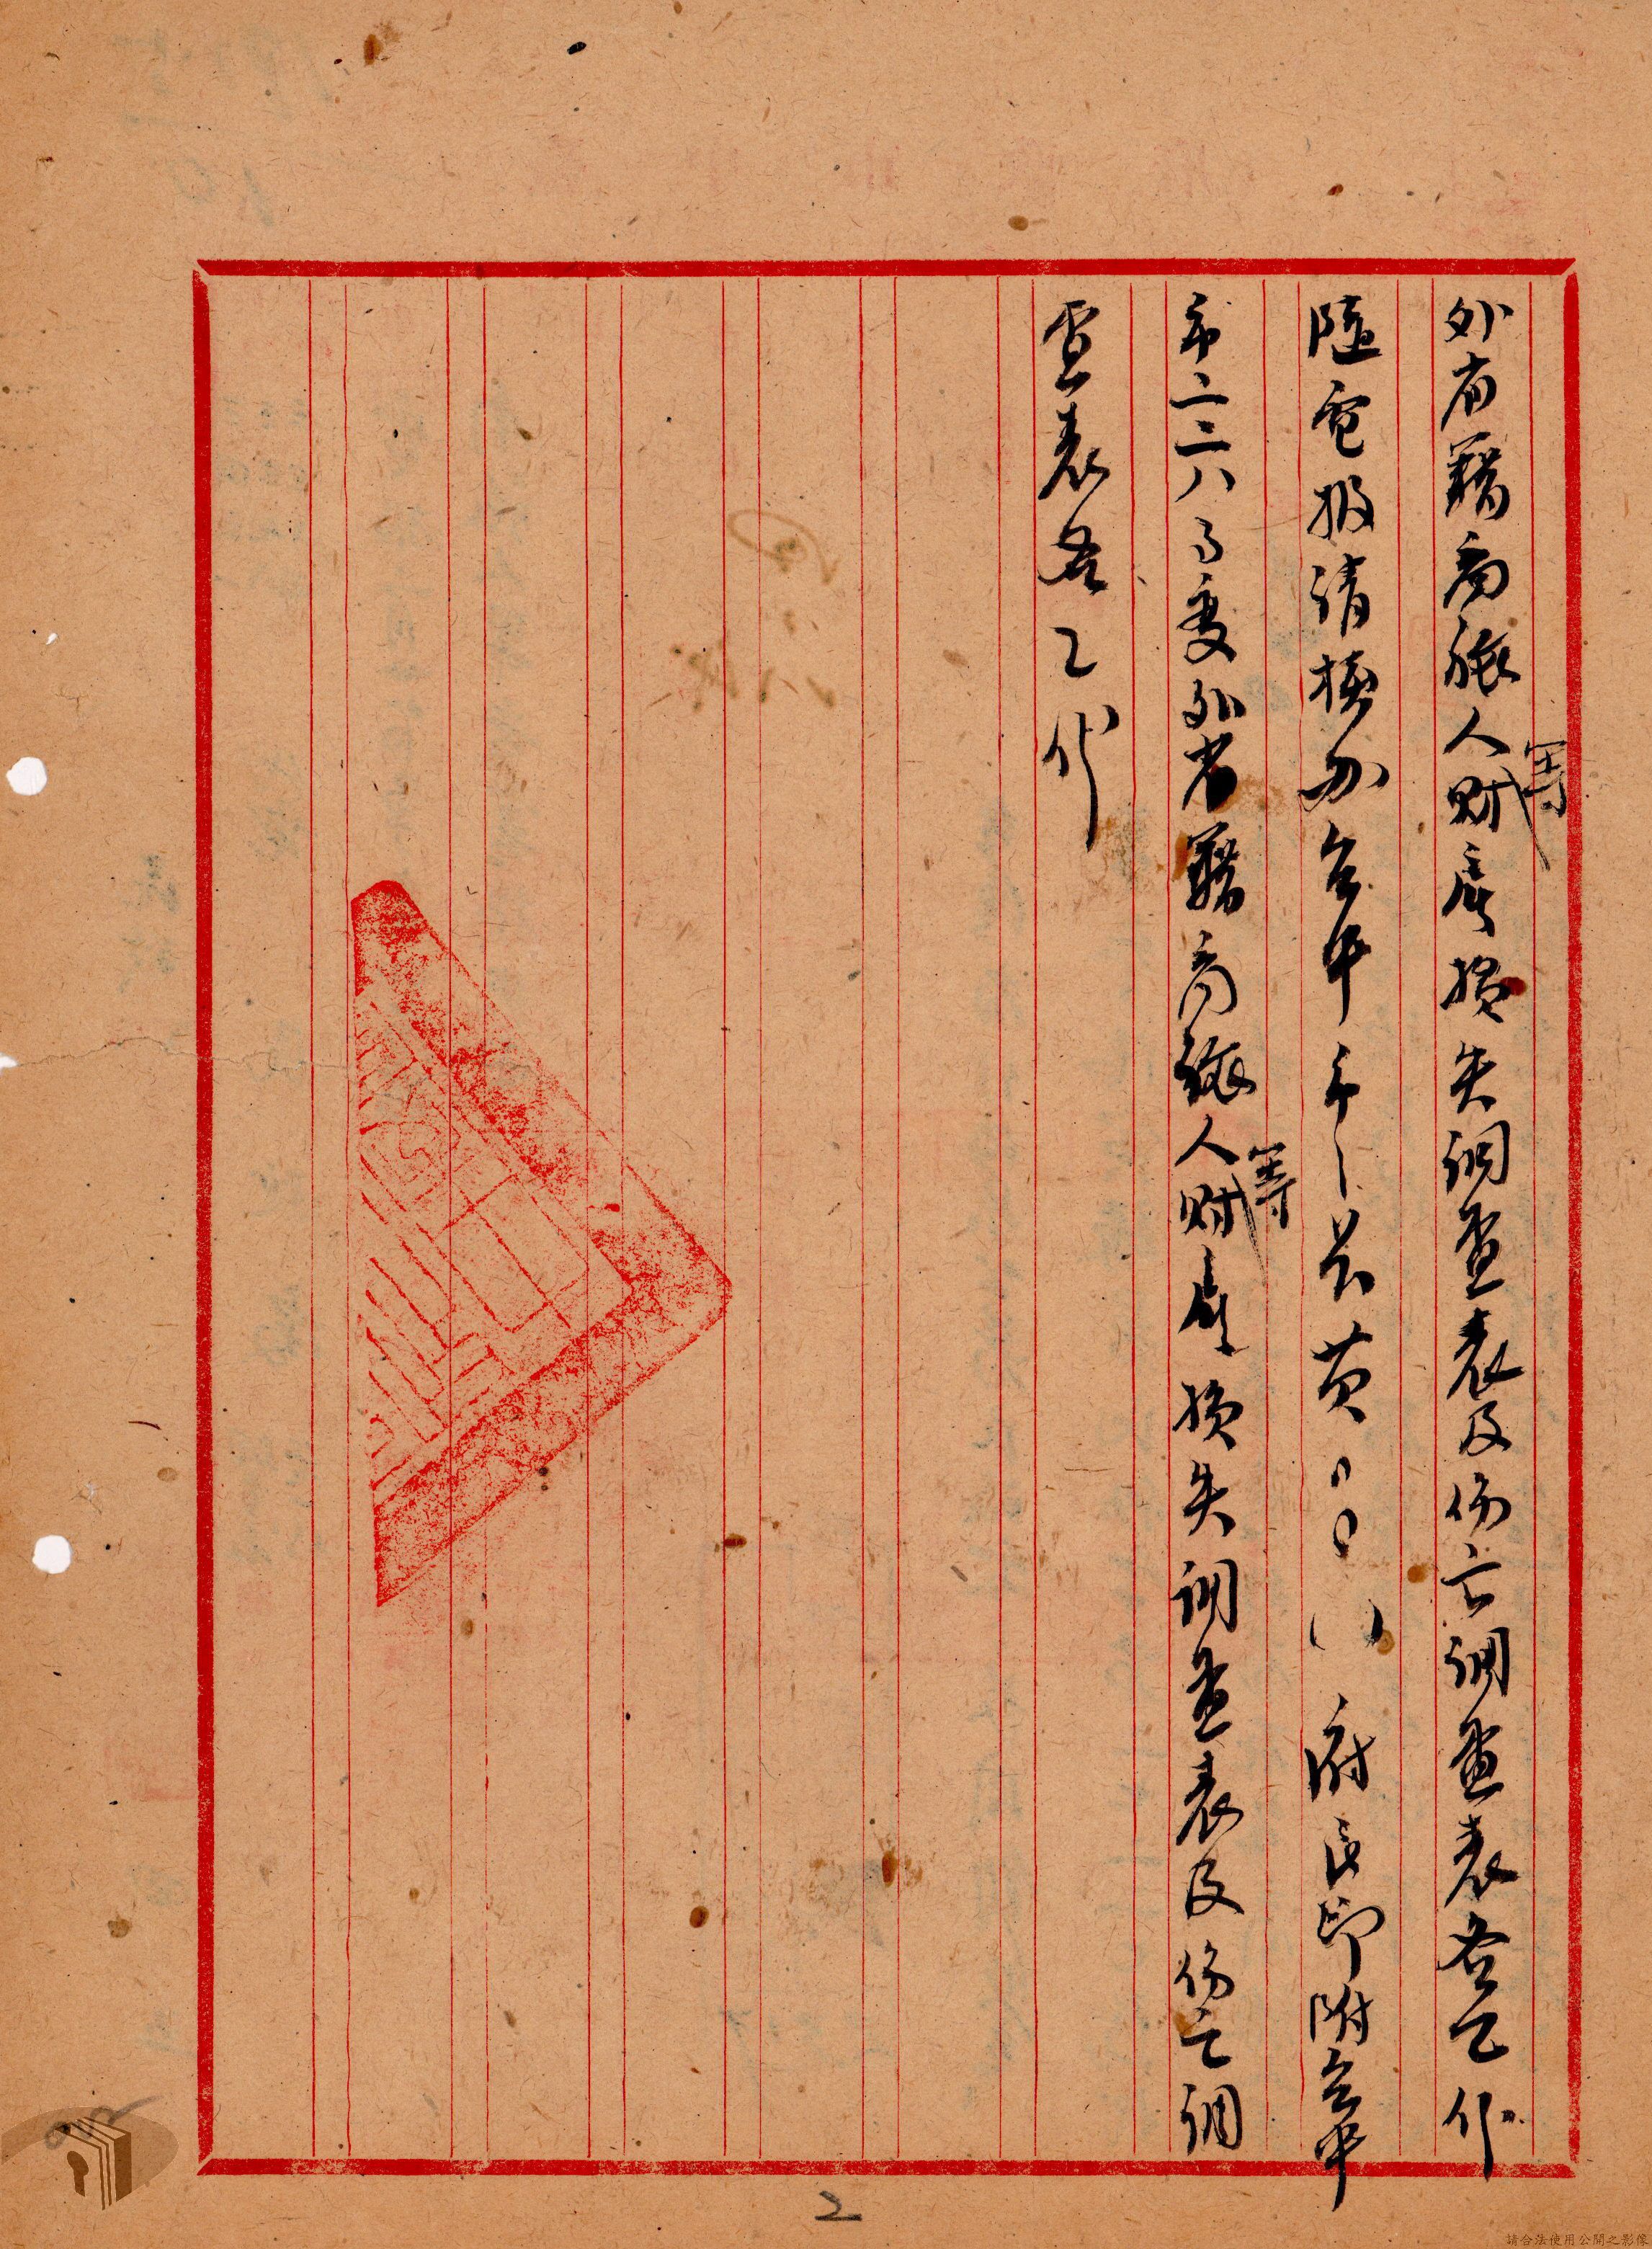 外省籍商旅人等財產損失調查表及傷亡調查表各乙份
隨電報請核办台中市長黃 府 印附台中
市二二八事变外省籍商旅人等財產損失調查表及傷亡調
查表各乙份
2
請合法使用公開之影像